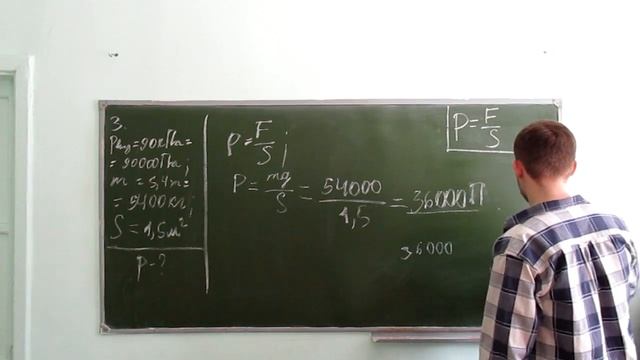 3.
= 90000Па;
m = 5,4т =
= 5400кг;
S = 1,5м²
P - ?
P = F/S;
P = mg/S = 54000/1,5 = 36000П
36000
P = F/S